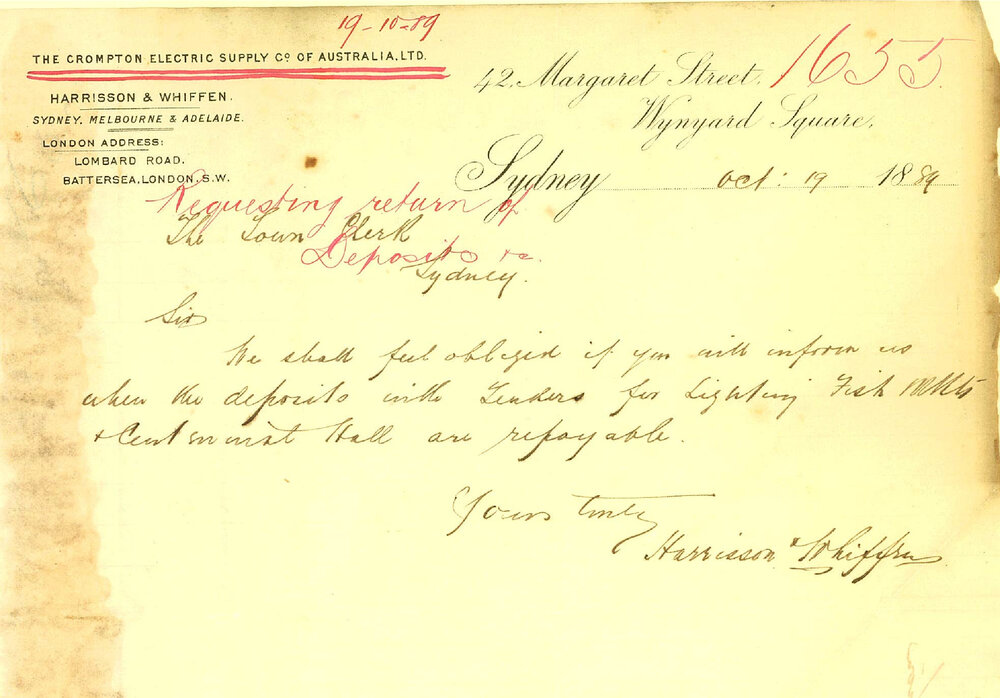 19-10-89
THE CROMPTON ELECTRIC SUPPLY Co OF AUSTRALIA, LTD.
HARRISSON & WHIFFEN.
SYDNEY, MELBOURNE & ADELAIDE.
LONDON ADDRESS:
LOMBARD ROAD,
BATTERSEA, LONDON, S.W.
42, Margaret Street,
1655
Wynyard Square,
Sydney Oct: 19 1889
Requesting return of
Deposits re.
The Town Clerk
Sydney.
Sir
We shall feel obliged if you will inform us
when the deposits with Tenders for Lighting Fish Mkts
& Centennial Hall are repayable.
Yours truly
Harrisson & Whiffen